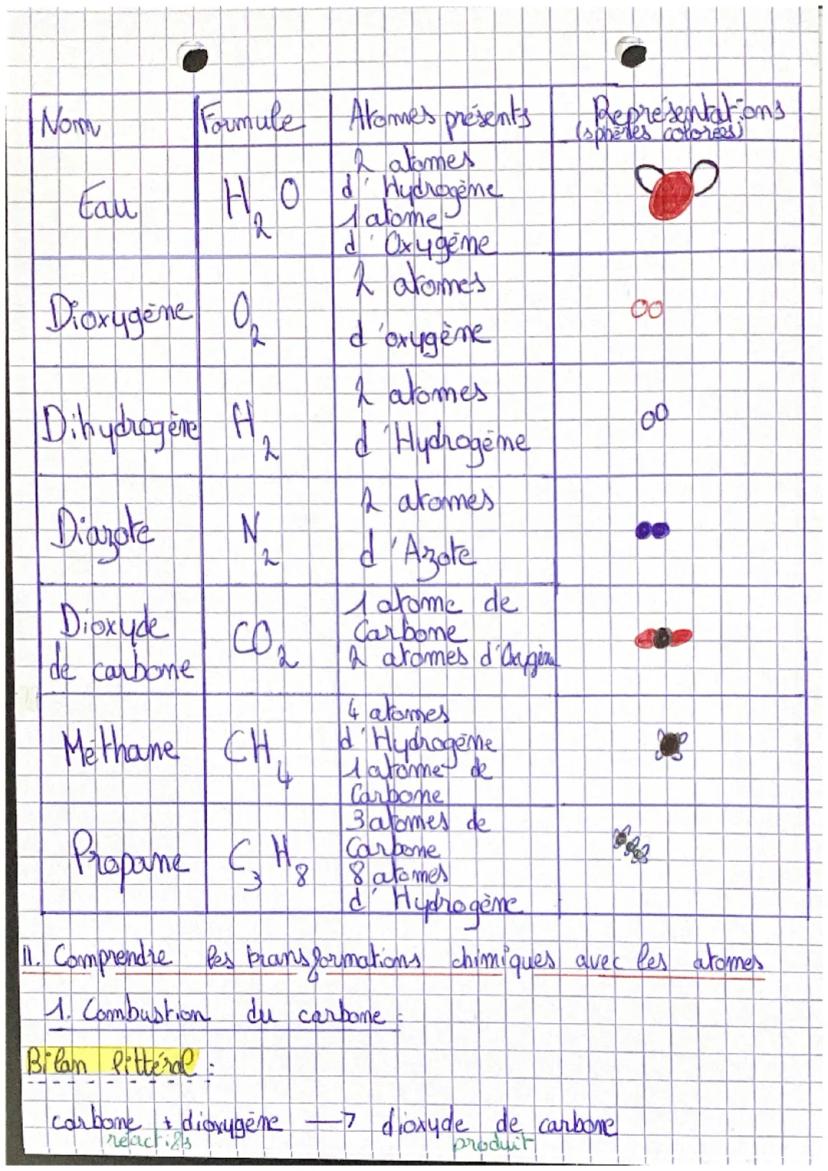 Nom Formule Atomes présents Représentations
(sphères colorées)
Eau H₂O 2 atomes
d'Hydrogène
1 atome
d'Oxygène
Dioxygène O₂ 2 atomes
d'oxygène
Dihydrogène H₂ 2 atomes
d'Hydrogène
Diazote N₂ 2 atomes
d'Azote
Dioxyde
de carbone CO₂ 1 atome de
Carbone
2 atomes d'Oxygène
Méthane CH₄ 4 atomes
d'Hydrogène
1 atome de
Carbone
Propane C₃H₈ 3 atomes de
Carbone
8 atomes
d'Hydrogène
II. Comprendre les transformations chimiques avec les atomes
1. Combustion du carbone :
Bilan littéral :
carbone + dioxygène → dioxyde de carbone
réactifs produit